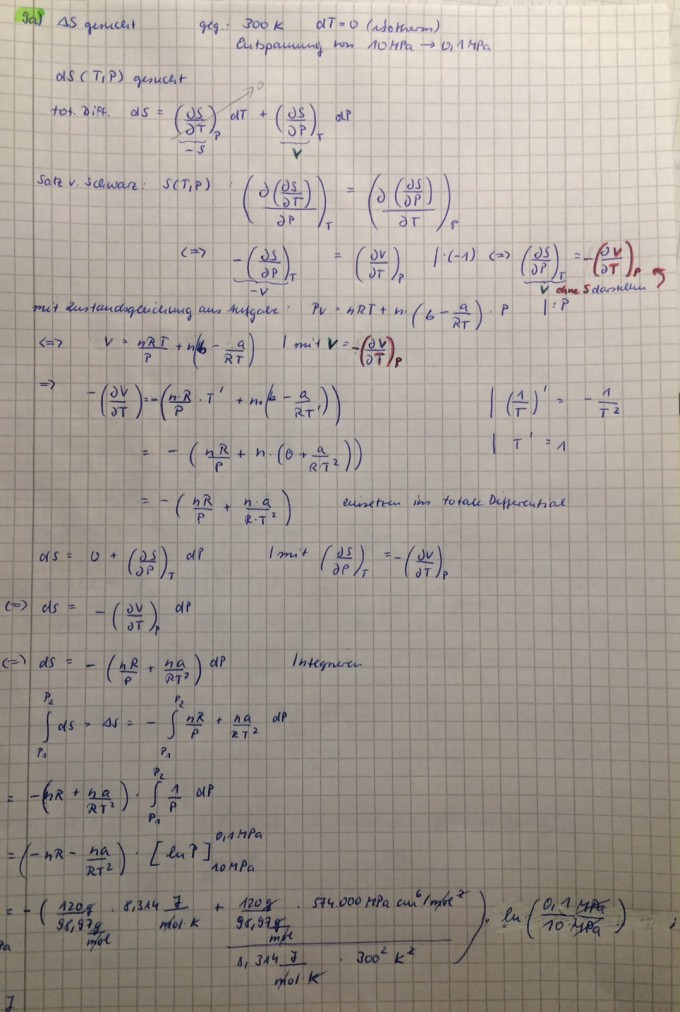 9a) ΔS gesucht geg.: 300 K dT = 0 (isotherm)
Entspannung von 10 MPa → 0,1 MPa
dS (T,P) gesucht
tot. Diff. dS = (∂S/∂T)_P dT + (∂S/∂P)_T dP
0
-S V
Satz v. Schwarz: S(T,P) : (∂(∂S/∂T)/∂P)_T = (∂(∂S/∂P)/∂T)_P
(=> -(∂S/∂P)_T = (∂V/∂T)_P |·(-1) <=> (∂S/∂P)_T = -(∂V/∂T)_P
-V V ohne S darstellen
mit Zustandsgleichung aus Aufgabe: PV = nRT + n·(b - a/RT)·P |:P
<=> V = nRT/P + n(b - a/RT) | mit V = -(∂V/∂T)_P
=> -(∂V/∂T) = -(n·R/P · T' + n·(b - a/RT')) | (1/T)' = - 1/T²
= - (nR/P + n·(0 + a/R·T²)) | T' = 1
= - (nR/P + n·a/R·T²) einsetzen ins totale Differential
dS = 0 + (∂S/∂P)_T dP | mit (∂S/∂P)_T = -(∂V/∂T)_P
<=> dS = -(∂V/∂T)_P dP
<=> dS = - (nR/P + na/RT²) dP Integrieren
∫_P1^P2 dS = ΔS = - ∫_P1^P2 nR/P + na/RT² dP
= -(nR + na/RT²) · ∫_P1^P2 1/P dP
= (-nR - na/RT²) · [ln P]_10 MPa^0,1 MPa
= - (120g/98,97 g/mol · 8,314 J/mol·K + 120g/98,97 g/mol · 574.000 MPa cm⁶/mol² / 8,314 J/mol·K · 300² K²) · ln(0,1 MPa/10 MPa) ;
Pa
J